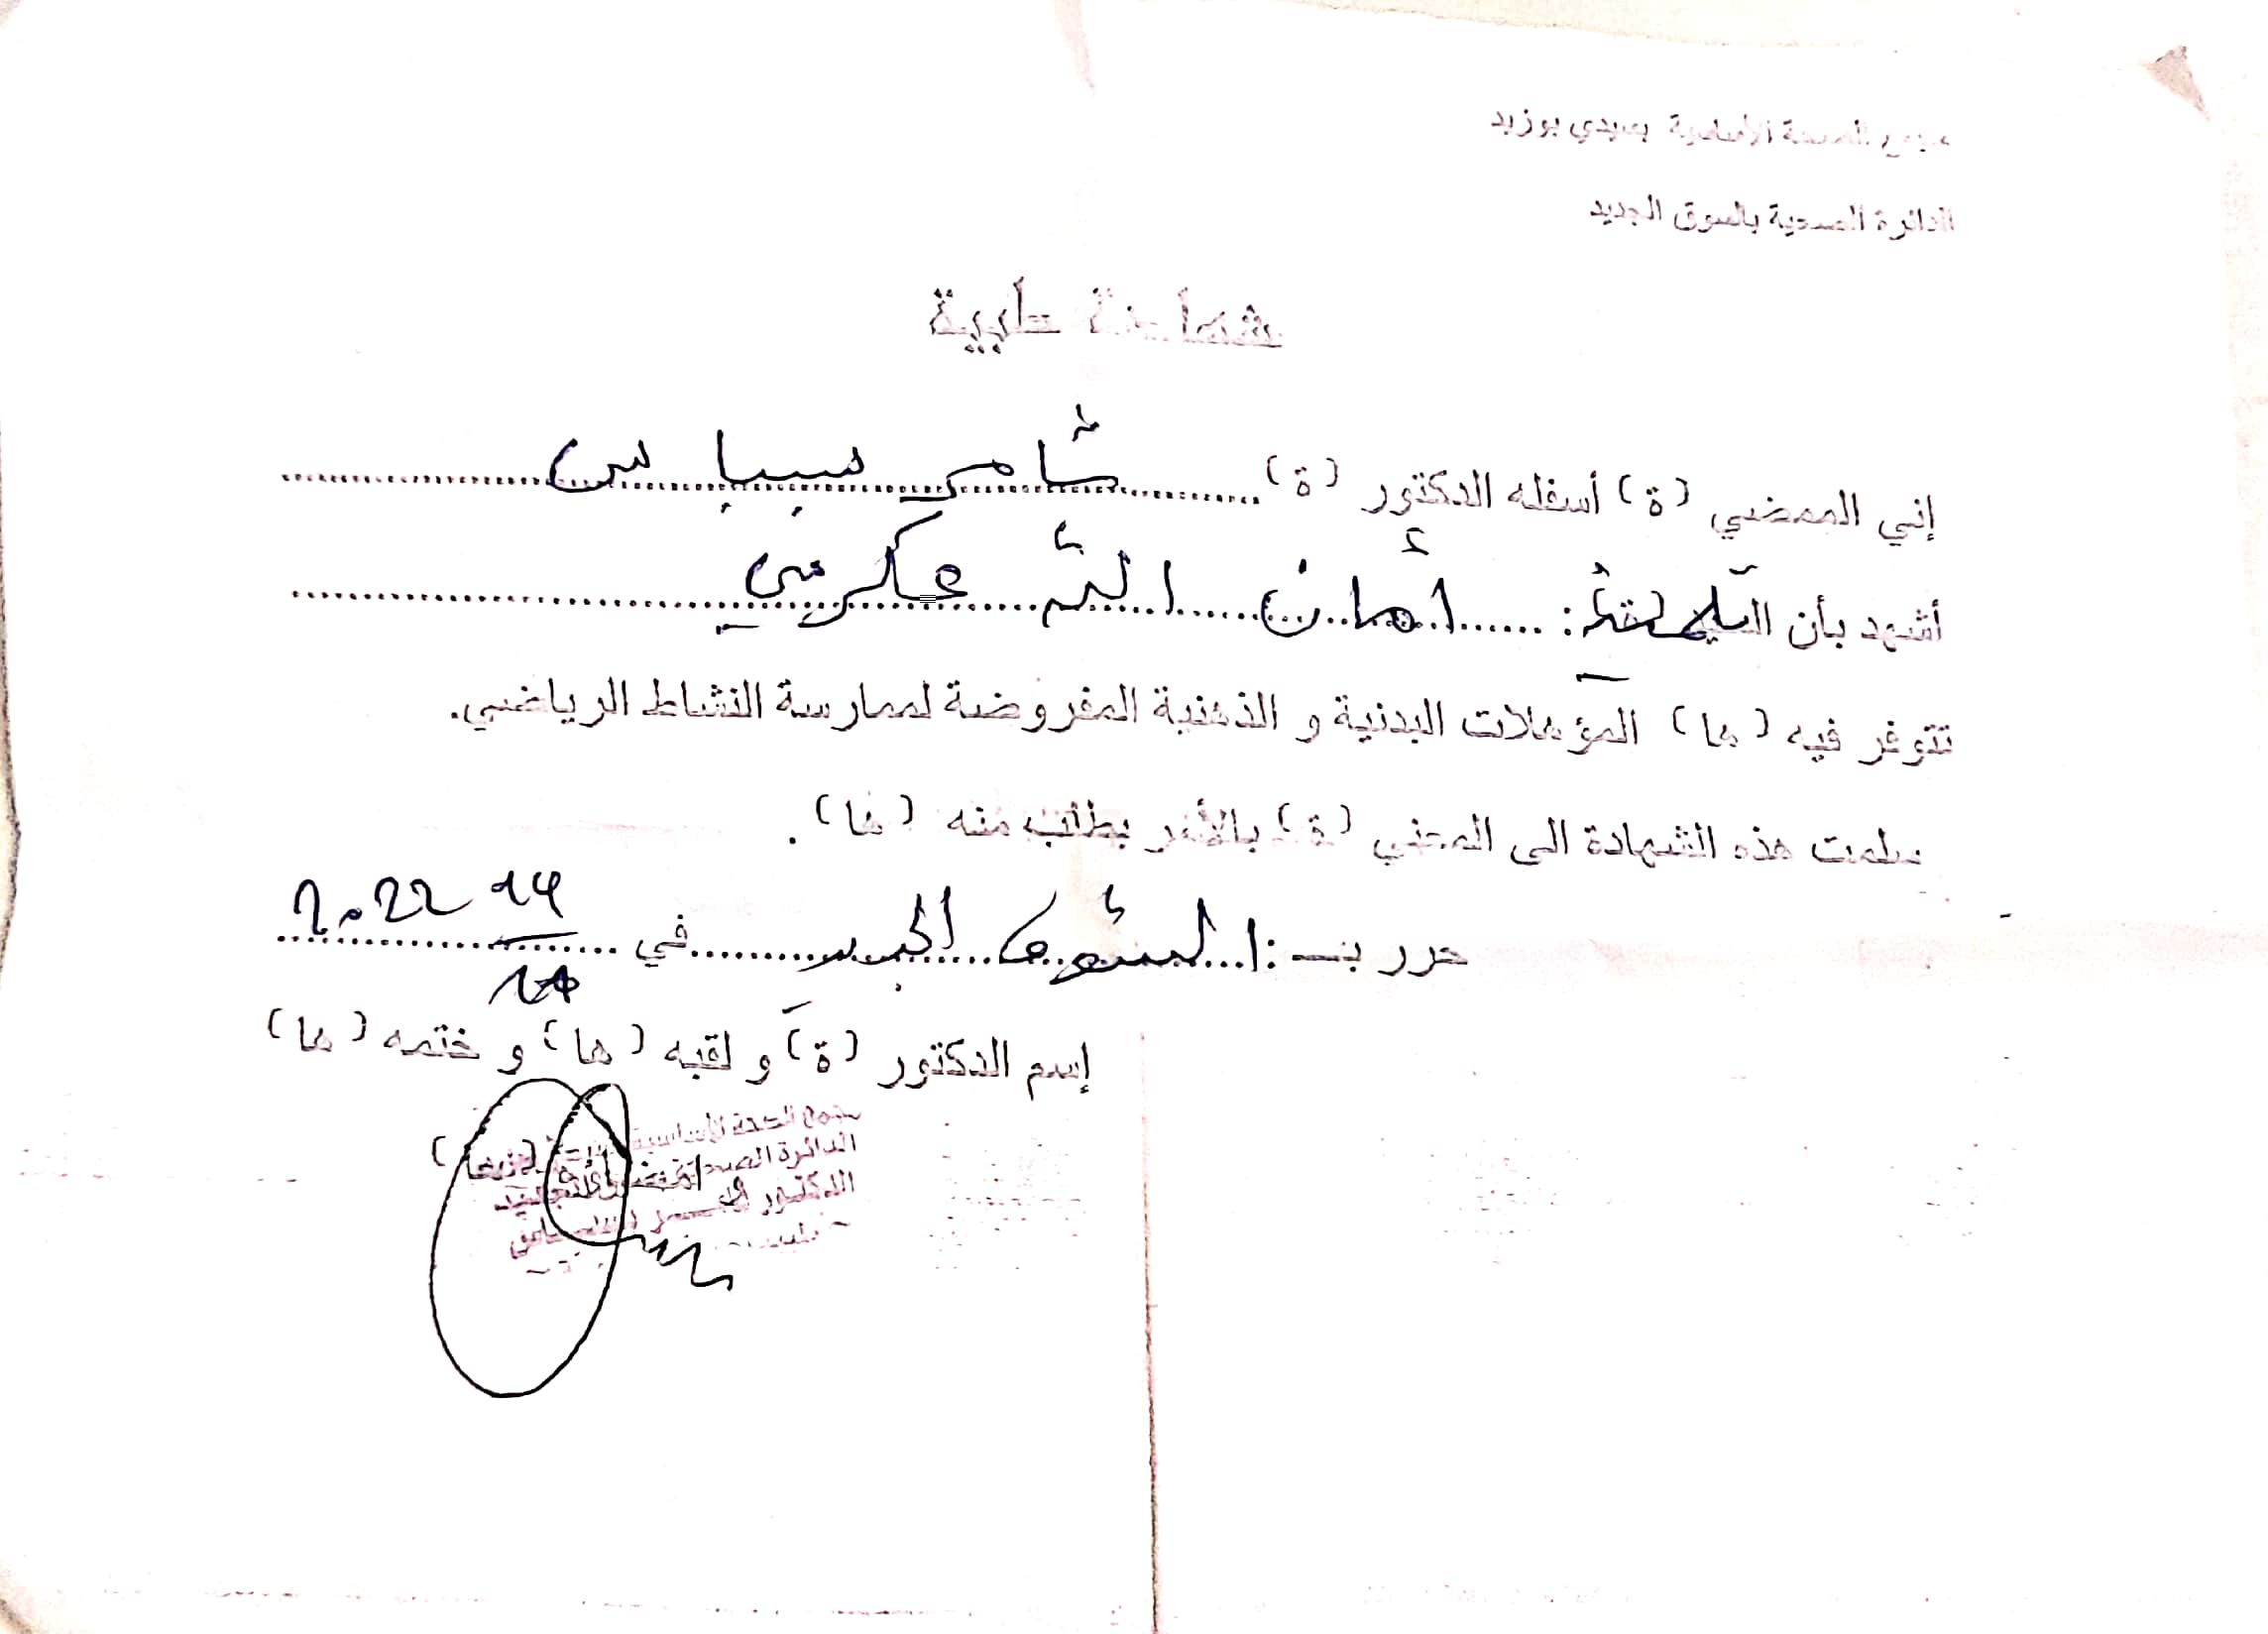 مجمع الصحة الأساسية بسيدي بوزيد
الدائرة الصحية بالسوق الجديد
شهادة طبية
إني الممضي (ة) أسفله الدكتور (ة) سامي
أشهد بأن التلميذة: أمان الله عكرمي
تتوفر فيه (ها) المؤهلات البدنية و الذهنية المفروضة لممارسة النشاط الرياضي.
سلمت هذه الشهادة الى المعني (ة) بالأمر بطلب منه (ها).
حرر بـ: السوق الجديد في 2022
إسم الدكتور (ة) و لقبه (ها) و ختمه (ها)
مجمع الصحة الأساسية
الدائرة
الدكتور